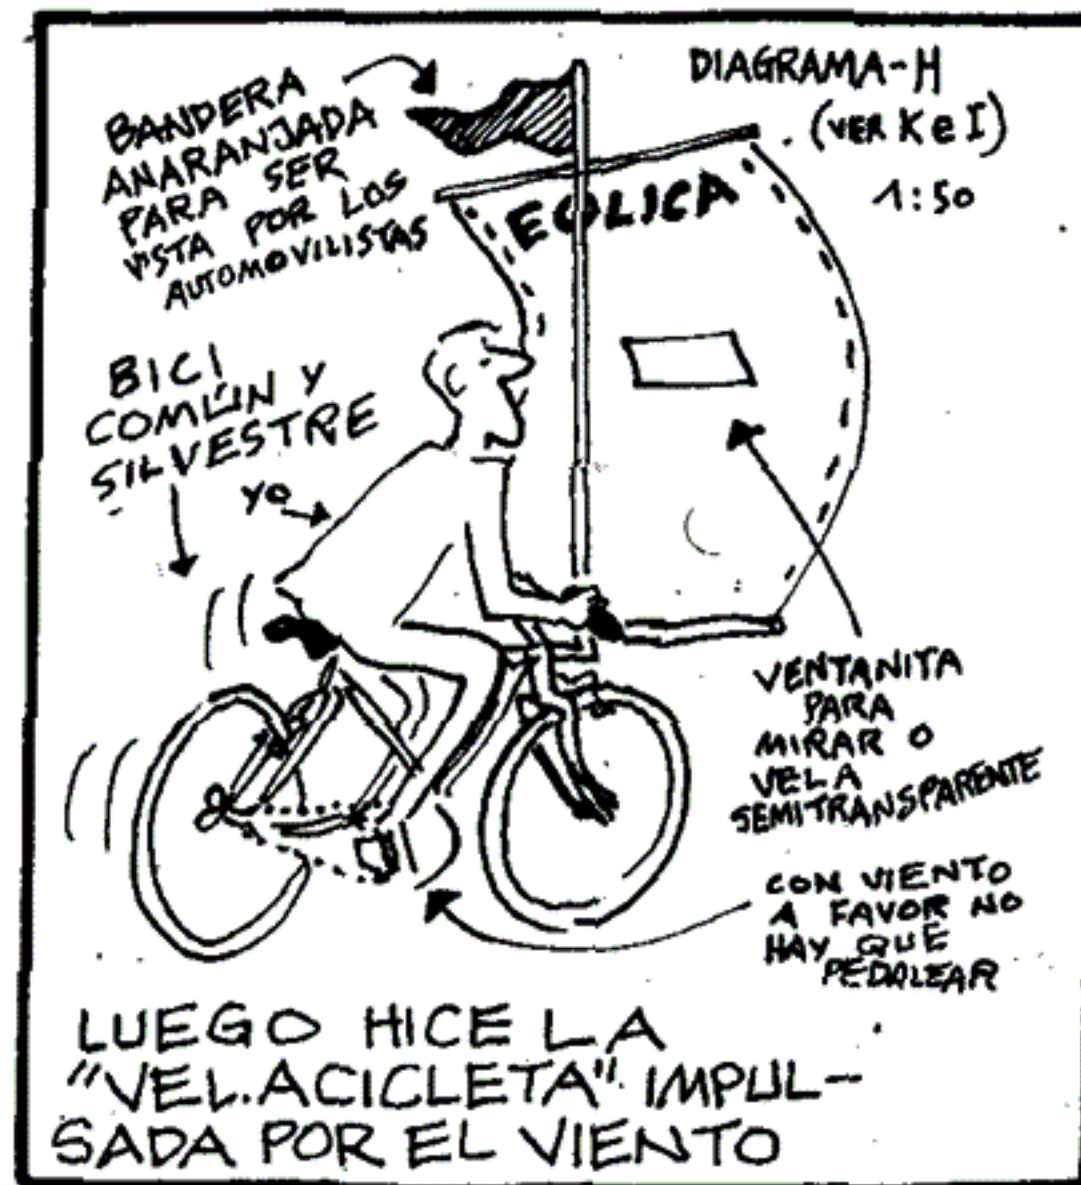 BANDERA
ANARANJADA
PARA SER
VISTA POR LOS
AUTOMOVILISTAS
DIAGRAMA-H
(VER K e I)
1:50
EOLICA
BICI
COMÚN Y
SILVESTRE
YO
VENTANITA
PARA
MIRAR O
VELA
SEMITRANSPARENTE
CON VIENTO
A FAVOR NO
HAY QUE
PEDALEAR
LUEGO HICE LA
"VEL.ACICLETA" IMPUL-
SADA POR EL VIENTO